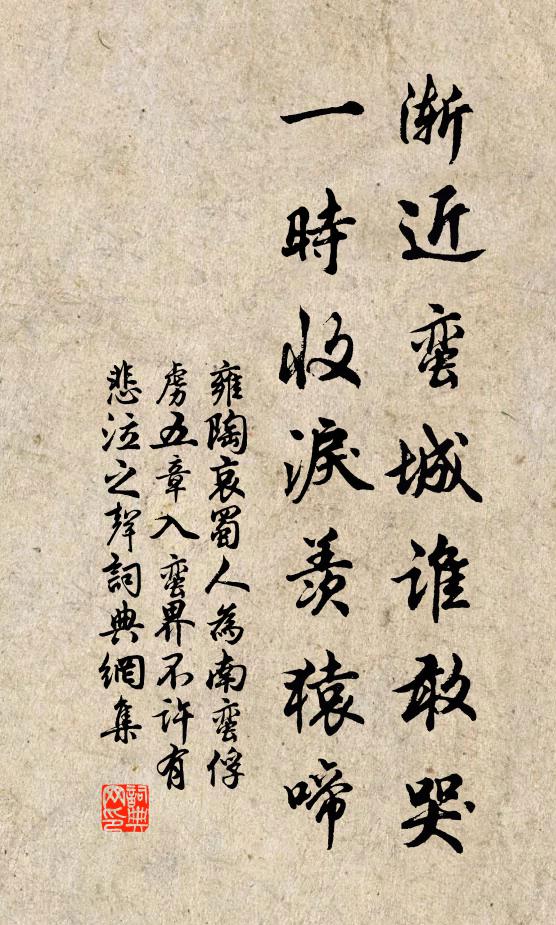 渐近蛮城谁敢哭
一時收淚羨猿啼
雍陶哀蜀人為南蛮俘
虜五章入蛮界不许有
悲泣之聲詞典網集
詞典
网印